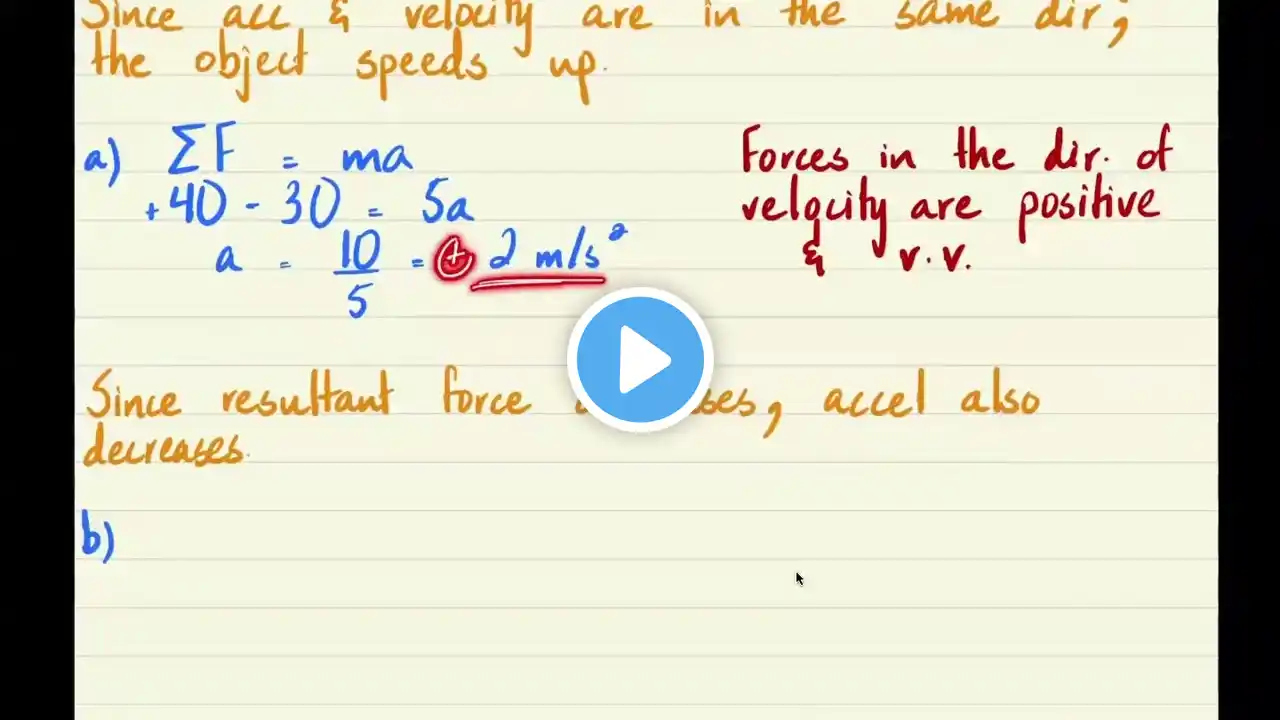 Since acc & velocity are in the same dir,
the object speeds up.
a) ΣF = ma
+40 - 30 = 5a
a = 10/5 = + 2 m/s²
Forces in the dir. of
velocity are positive
& v.v.
Since resultant force, accel also
decreases.
b)